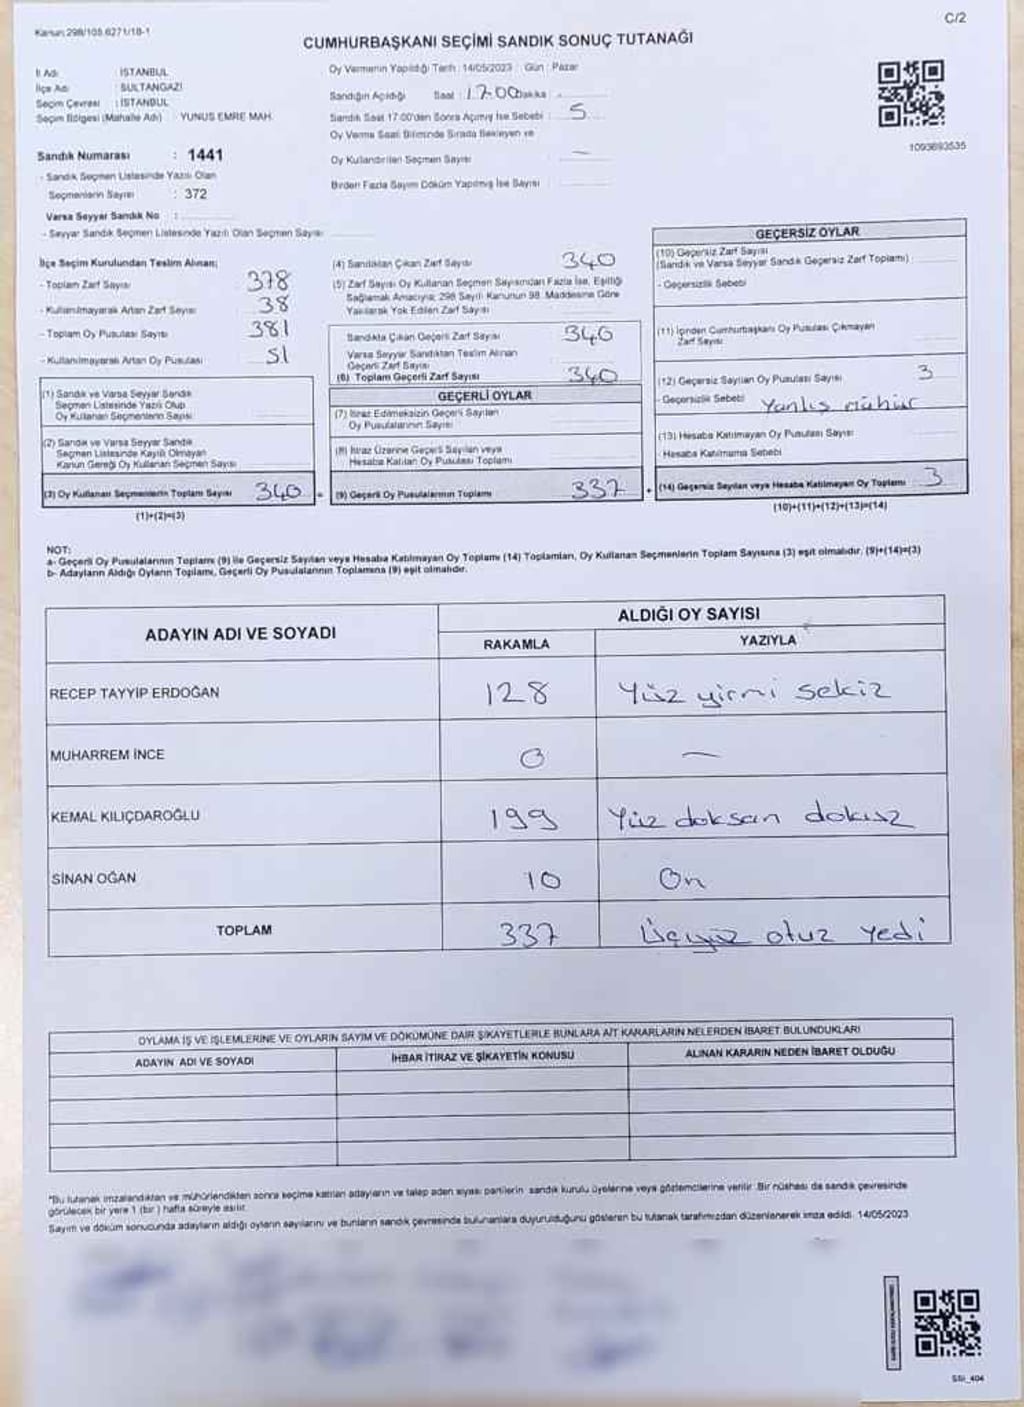 Kanun:298/105,6271/18-1
C/2
CUMHURBAŞKANI SEÇİMİ SANDIK SONUÇ TUTANAĞI
İl Adı : İSTANBUL
İlçe Adı : SULTANGAZİ
Seçim Çevresi : İSTANBUL
Seçim Bölgesi (Mahalle Adı) : YUNUS EMRE MAH.
Sandık Numarası : 1441
- Sandık Seçmen Listesinde Yazılı Olan
Seçmenlerin Sayısı : 372
Varsa Seyyar Sandık No :
- Seyyar Sandık Seçmen Listesinde Yazılı Olan Seçmen Sayısı
Oy Vermenin Yapıldığı Tarih : 14/05/2023 Gün : Pazar
Sandığın Açıldığı Saat : 17.00 Dakika :
Sandık Saat 17:00'den Sonra Açımış İse Sebebi : S
Oy Verme Saati Bitiminde Sırada Bekleyen ve
Oy Kullandırılan Seçmen Sayısı : —
Birden Fazla Sayım Döküm Yapılmış İse Sayısı :
1093693535
İlçe Seçim Kurulundan Teslim Alınan;
- Toplam Zarf Sayısı 378
- Kullanılmayarak Artan Zarf Sayısı 38
- Toplam Oy Pusulası Sayısı 381
- Kullanılmayarak Artan Oy Pusulası 51
(1) Sandık ve Varsa Seyyar Sandık
Seçmen Listesinde Yazılı Olup
Oy Kullanan Seçmenlerin Sayısı
(2) Sandık ve Varsa Seyyar Sandık
Seçmen Listesinde Kayıtlı Olmayan
Kanun Gereği Oy Kullanan Seçmen Sayısı
(3) Oy Kullanan Seçmenlerin Toplam Sayısı 340 =
(1)+(2)=(3)
(4) Sandıktan Çıkan Zarf Sayısı 340
(5) Zarf Sayısı Oy Kullanan Seçmen Sayısından Fazla İse, Eşitliği
Sağlamak Amacıyla; 298 Sayılı Kanunun 98. Maddesine Göre
Yakılarak Yok Edilen Zarf Sayısı
Sandıkta Çıkan Geçerli Zarf Sayısı 340
Varsa Seyyar Sandıktan Teslim Alınan
Geçerli Zarf Sayısı
(6) Toplam Geçerli Zarf Sayısı 340
GEÇERLİ OYLAR
(7) İtiraz Edilmeksizin Geçerli Sayılan
Oy Pusulalarının Sayısı
(8) İtiraz Üzerine Geçerli Sayılan veya
Hesaba Katılan Oy Pusulası Toplamı
(9) Geçerli Oy Pusulalarının Toplamı 337 +
GEÇERSİZ OYLAR
(10) Geçersiz Zarf Sayısı
(Sandık ve Varsa Seyyar Sandık Geçersiz Zarf Toplamı)
- Geçersizlik Sebebi
(11) İçinden Cumhurbaşkanı Oy Pusulası Çıkmayan
Zarf Sayısı
(12) Geçersiz Sayılan Oy Pusulası Sayısı 3
- Geçersizlik Sebebi Yanlış mühür
(13) Hesaba Katılmayan Oy Pusulası Sayısı
- Hesaba Katılmama Sebebi
(14) Geçersiz Sayılan veya Hesaba Katılmayan Oy Toplamı 3
(10)+(11)+(12)+(13)=(14)
NOT:
a- Geçerli Oy Pusulalarının Toplamı (9) ile Geçersiz Sayılan veya Hesaba Katılmayan Oy Toplamı (14) Toplamları, Oy Kullanan Seçmenlerin Toplam Sayısına (3) eşit olmalıdır. (9)+(14)=(3)
b- Adayların Aldığı Oyların Toplamı, Geçerli Oy Pusulalarının Toplamına (9) eşit olmalıdır.
ADAYIN ADI VE SOYADI ALDIĞI OY SAYISI
RAKAMLA YAZIYLA
RECEP TAYYİP ERDOĞAN 128 Yüz yirmi sekiz
MUHARREM İNCE 0 —
KEMAL KILIÇDAROĞLU 199 Yüz doksan dokuz
SİNAN OĞAN 10 On
TOPLAM 337 Üçyüz otuz yedi
OYLAMA İŞ VE İŞLEMLERİNE VE OYLARIN SAYIM VE DÖKÜMÜNE DAİR ŞİKAYETLERLE BUNLARA AİT KARARLARIN NELERDEN İBARET BULUNDUKLARI
ADAYIN ADI VE SOYADI İHBAR İTİRAZ VE ŞİKAYETİN KONUSU ALINAN KARARIN NEDEN İBARET OLDUĞU
*Bu tutanak imzalandıktan ve mühürlendikten sonra seçime katılan adayların ve talep eden siyasi partilerin sandık kurulu üyelerine veya gözlemcilerine verilir. Bir nüshası da sandık çevresinde
görülecek bir yere 1 (bir ) hafta süreyle asılır.
Sayım ve döküm sonucunda adayların aldığı oyların sayılarını ve bunların sandık çevresinde bulunanlara duyurulduğunu gösteren bu tutanak tarafımızdan düzenlenerek imza edildi. 14/05/2023
SSI_404